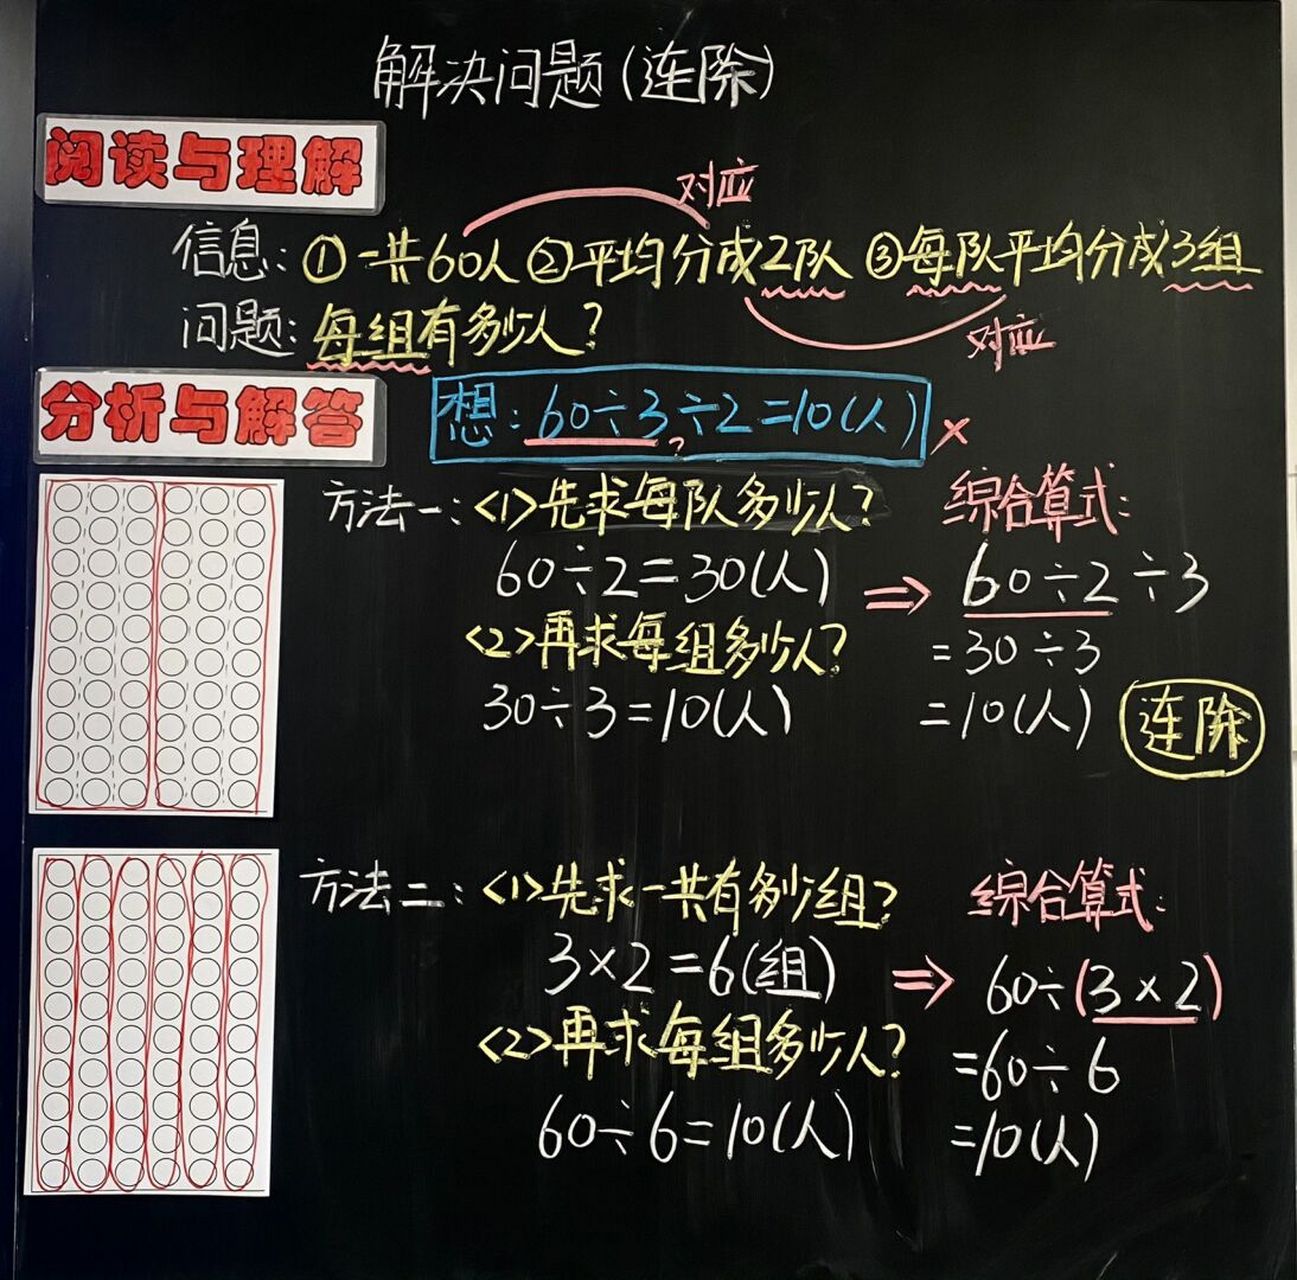 解决问题(连除)
阅读与理解
对应
信息:①一共60人 ②平均分成2队 ③每队平均分成3组
问题:每组有多少人?
对应
分析与解答
想:60÷3÷2=10(人) ×
?
方法一:<1>先求每队多少人?
60÷2=30(人)
<2>再求每组多少人?
30÷3=10(人)
⇒
综合算式:
60÷2÷3
=30÷3
=10(人)
连除
方法二:<1>先求一共有多少组?
3×2=6(组)
<2>再求每组多少人?
60÷6=10(人)
⇒
综合算式:
60÷(3×2)
=60÷6
=10(人)